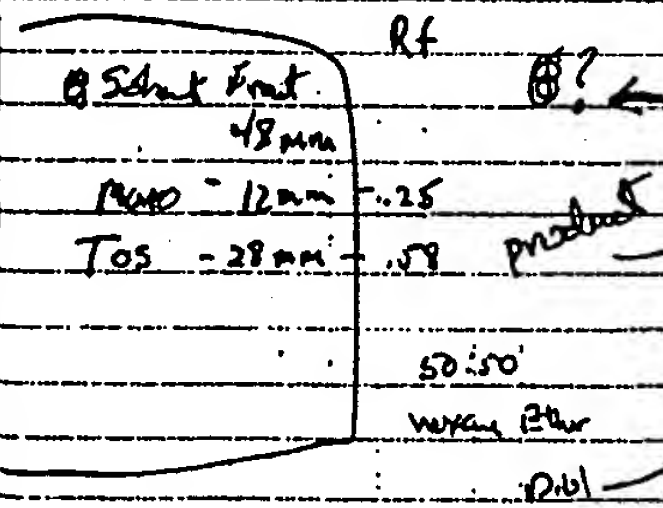 Rf
Solvent Front ?
48 mm
Mono - 12 mm - .25
TOS - 28 mm - .58
product
50:50
Hexane Ether